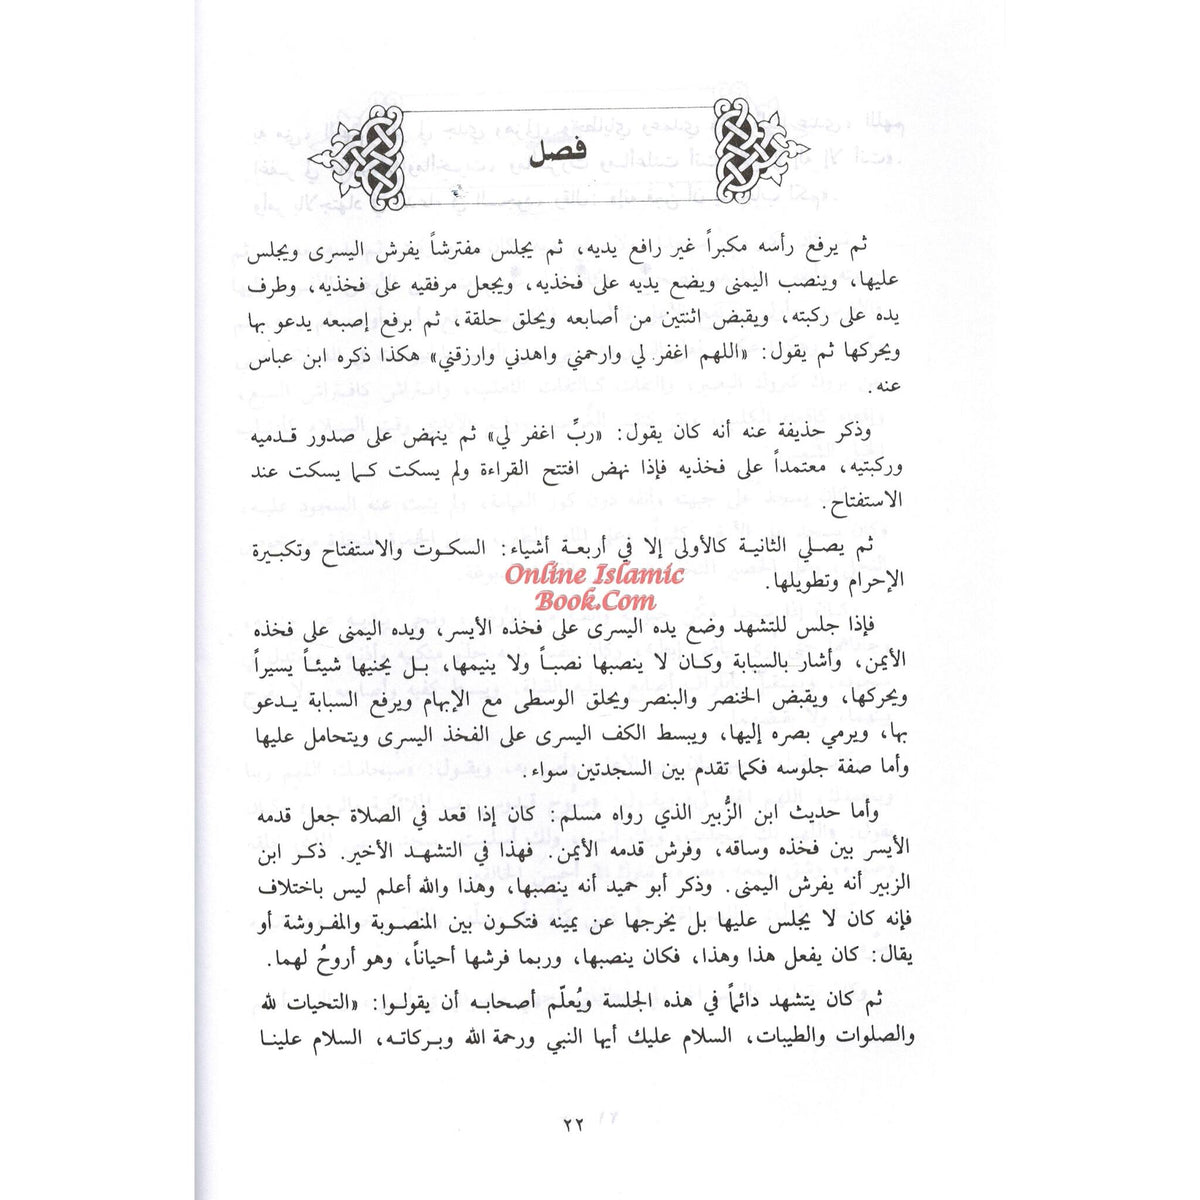 فصل
ثم يرفع رأسه مكبراً غير رافع يديه، ثم يجلس مفترشاً يفرش اليسرى ويجلس
عليها، وينصب اليمنى ويضع يديه على فخذيه، ويجعل مرفقيه على فخذيه، وطرف
يده على ركبته، ويقبض اثنتين من أصابعه ويحلق حلقة، ثم يرفع إصبعه يدعو بها
ويحركها ثم يقول: «اللهم اغفر لي وارحمني واهدني وارزقني» هكذا ذكره ابن عباس
عنه.
وذكر حذيفة عنه أنه كان يقول: «ربِّ اغفر لي» ثم ينهض على صدور قدميه
وركبتيه، معتمداً على فخذيه فإذا نهض افتتح القراءة ولم يسكت كما يسكت عند
الاستفتاح.
ثم يصلي الثانية كالأولى إلا في أربعة أشياء: السكوت والاستفتاح وتكبيرة
الإحرام وتطويلها.
Online Islamic
Book.Com
فإذا جلس للتشهد وضع يده اليسرى على فخذه الأيسر، ويده اليمنى على فخذه
الأيمن، وأشار بالسبابة وكان لا ينصبها نصباً ولا ينيمها، بل يحنيها شيئاً يسيراً
ويحركها، ويقبض الخنصر والبنصر ويحلق الوسطى مع الإبهام ويرفع السبابة يدعو
بها، ويرمي بصره إليها، ويبسط الكف اليسرى على الفخذ اليسرى ويتحامل عليها
وأما صفة جلوسه فكما تقدم بين السجدتين سواء.
وأما حديث ابن الزُّبير الذي رواه مسلم: كان إذا قعد في الصلاة جعل قدمه
الأيسر بين فخذه وساقه، وفرش قدمه الأيمن. فهذا في التشهد الأخير. ذكر ابن
الزبير أنه يفرش اليمنى. وذكر أبو حميد أنه ينصبها، وهذا والله أعلم ليس باختلاف
فإنه كان لا يجلس عليها بل يخرجها عن يمينه فتكون بين المنصوبة والمفروشة أو
يقال: كان يفعل هذا وهذا، فكان ينصبها، وربما فرشها أحياناً، وهو أروحُ لهما.
ثم كان يتشهد دائماً في هذه الجلسة ويُعلّم أصحابه أن يقولوا: «التحيات لله
والصلوات والطيبات، السلام عليك أيها النبي ورحمة الله وبركاته، السلام علينا
٢٢